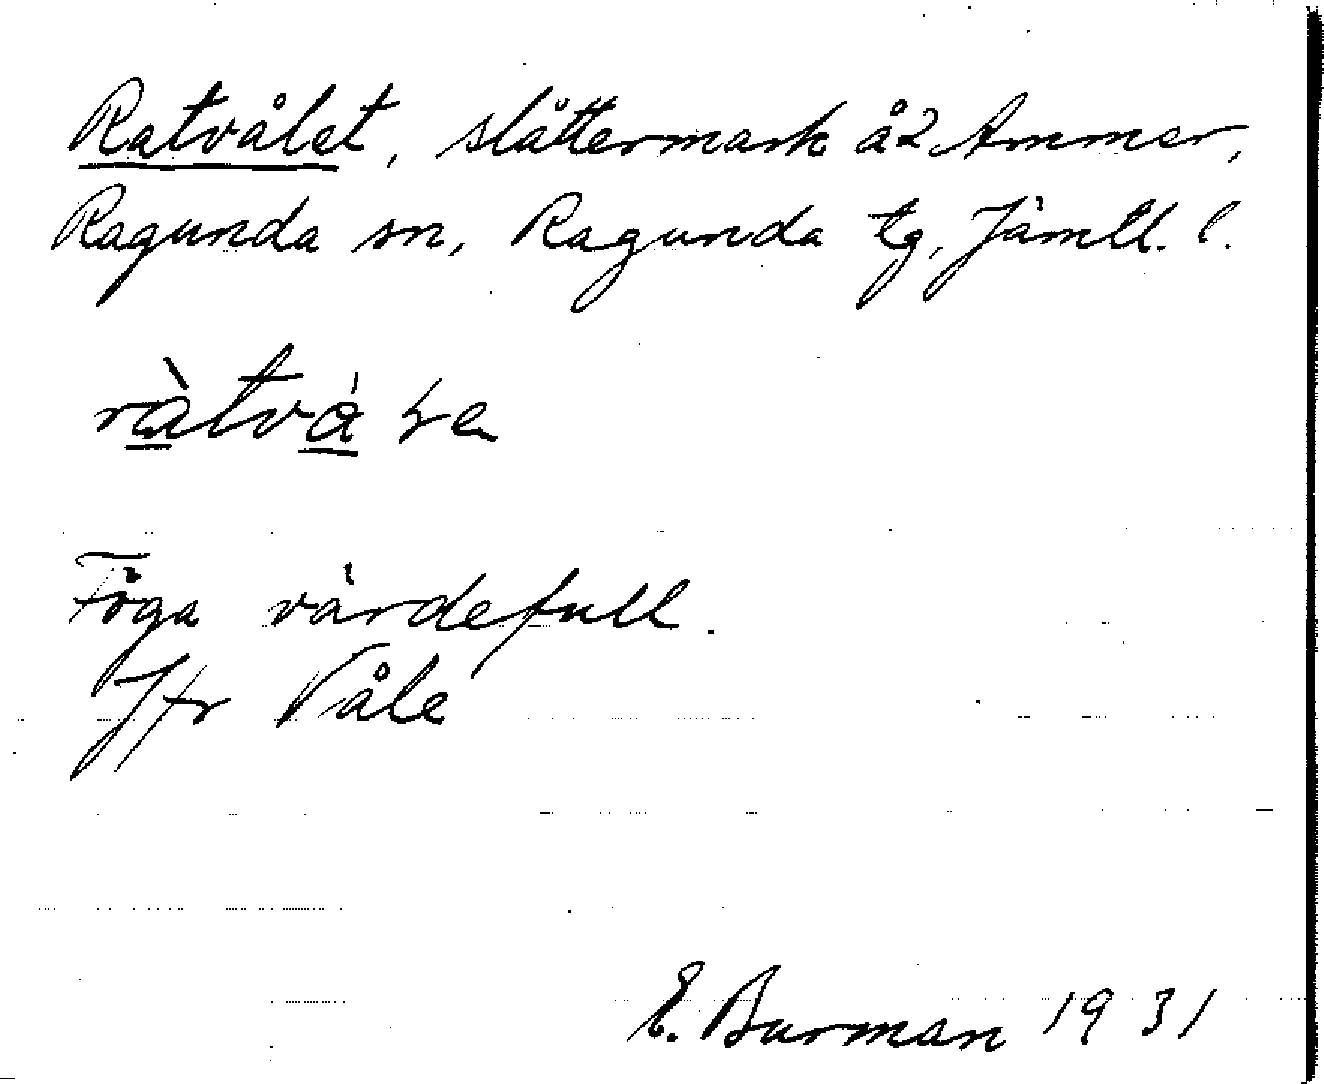 Ratvålet, slåttermark å 2 Ammer,
Ragunda sn, Ragunda tg, Jämtl. l.
Föga värdefull.
Jfr Våle
E. Burman 1931